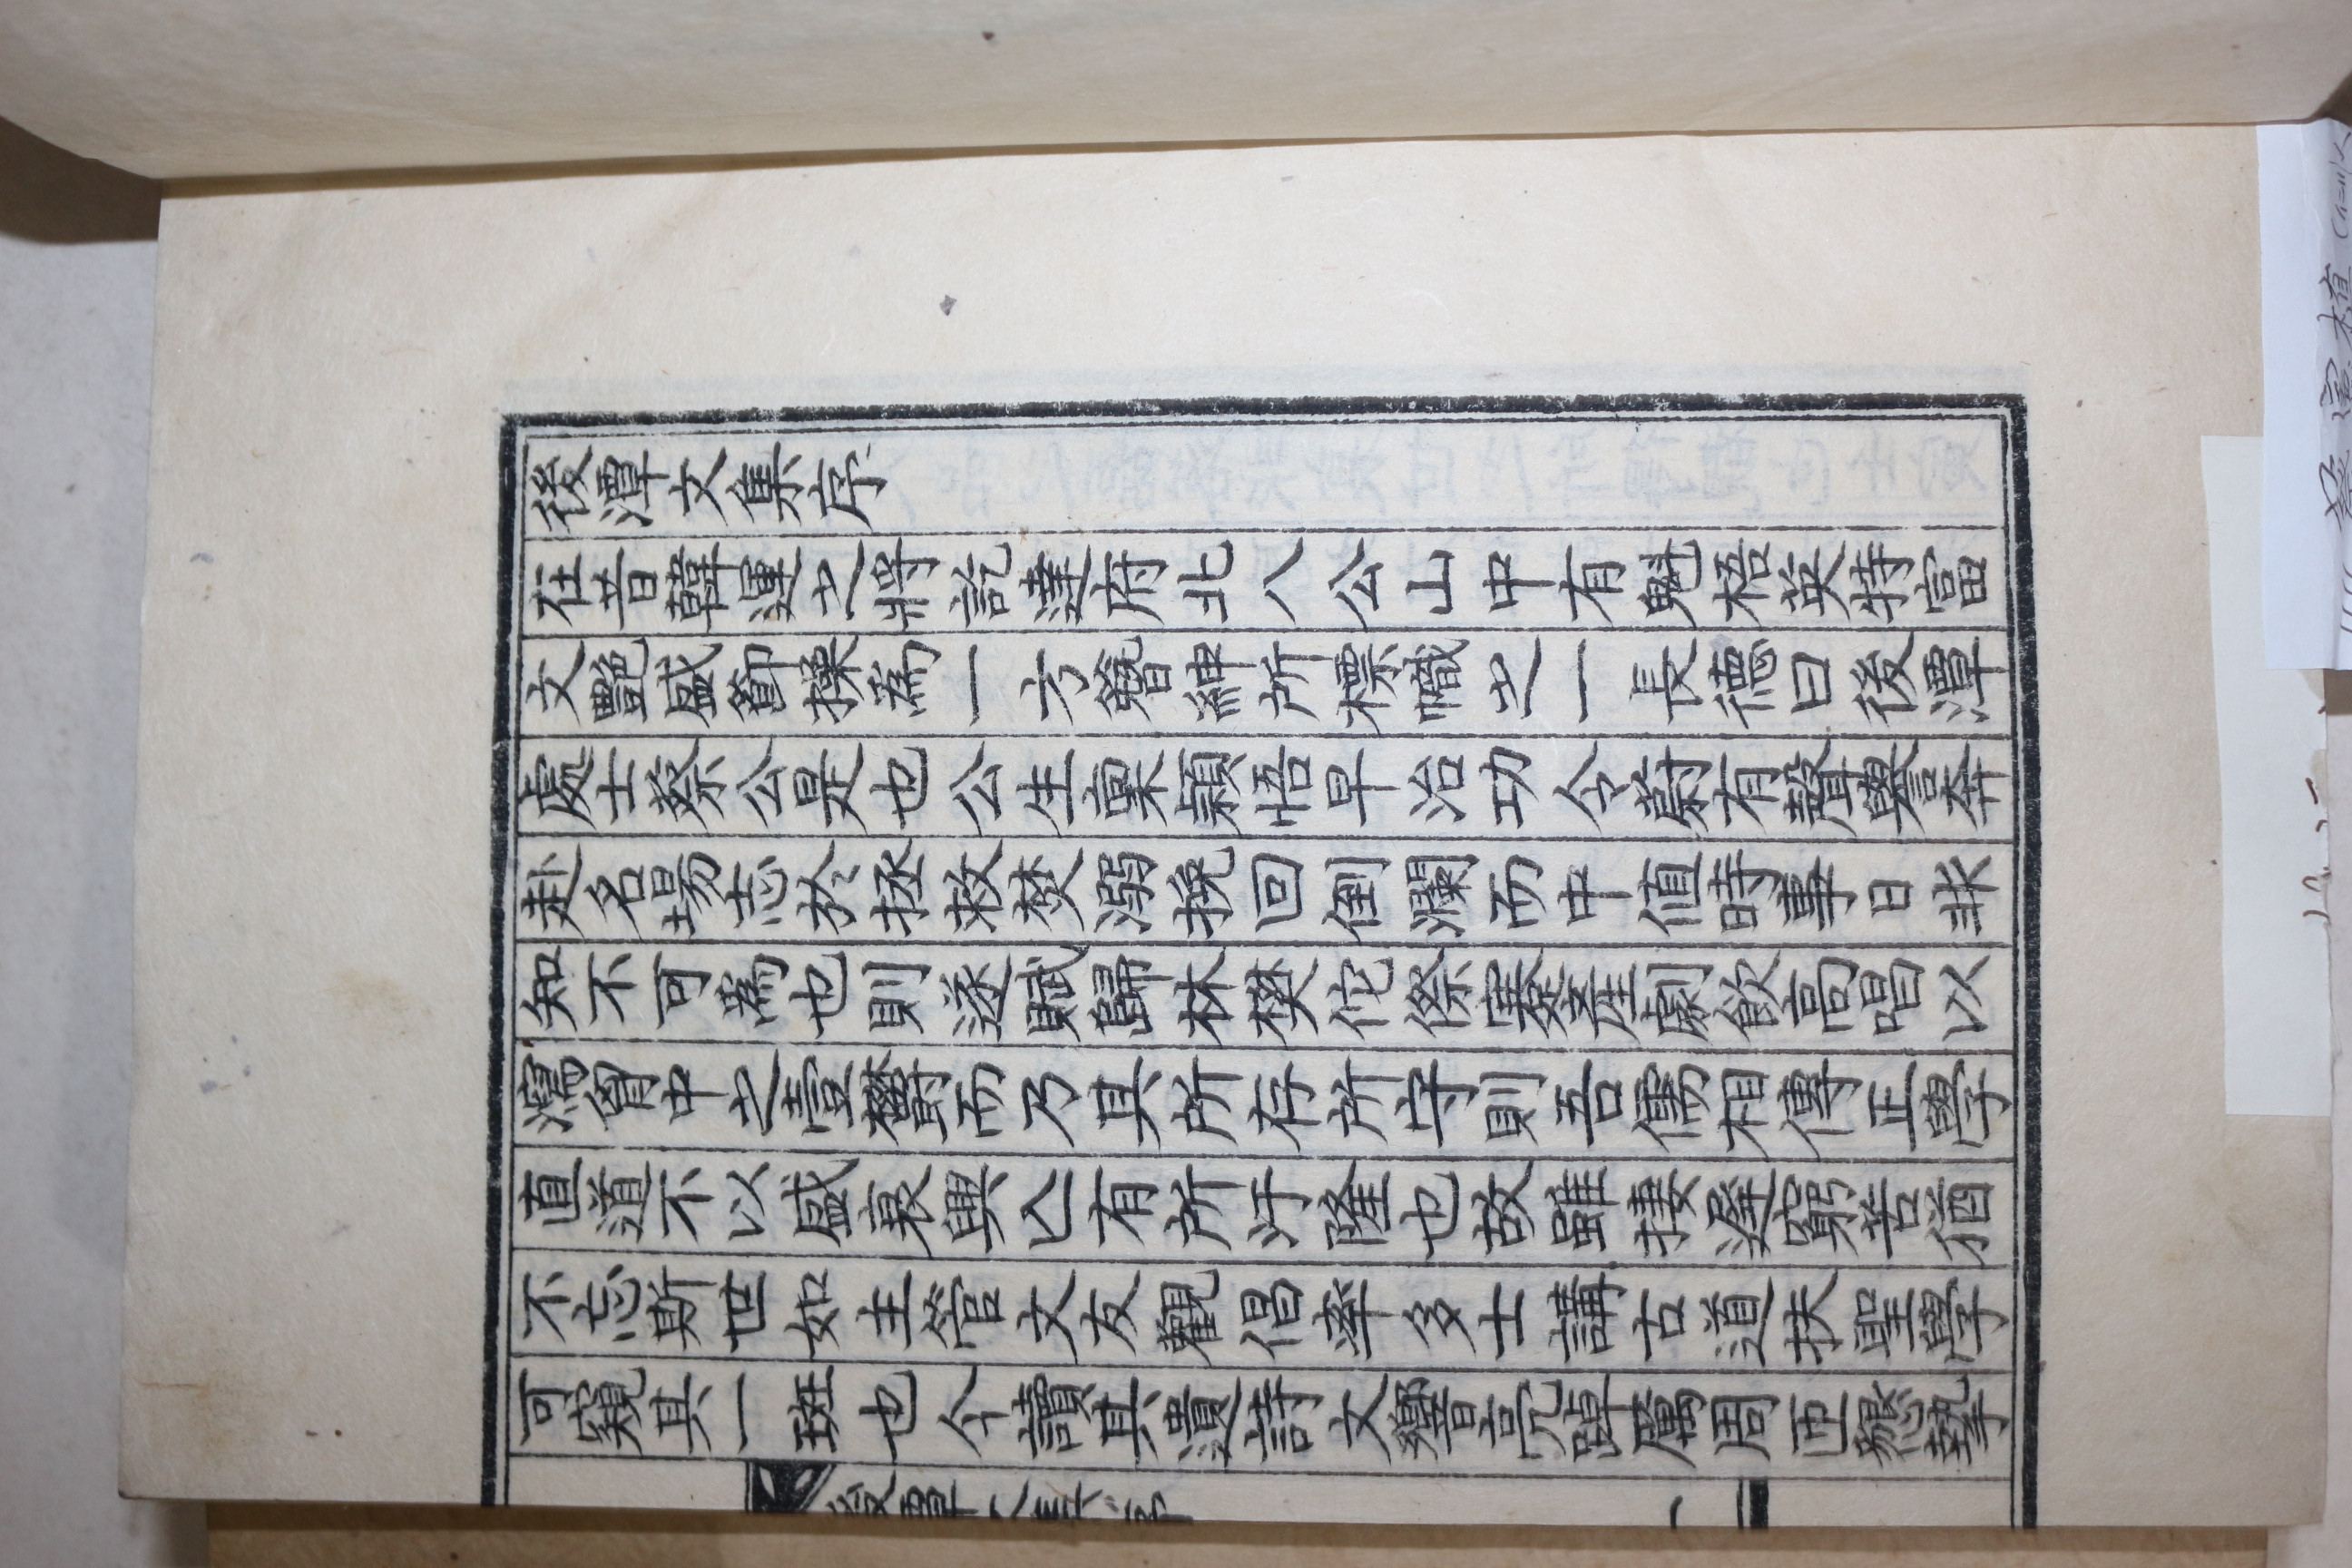 後潭文集序
往昔韓運之將訖達府北八公山中有魁梧英特富
文艶盛節操爲一方簪紳所標幟之一長德曰後潭
處士蔡公是也公生稟穎悟早治功令蔚有聲譽言奔
赴名場志於拯救焚溺挽回倒瀾而中値時事日非
知不可爲也則遂賦歸林樊佗傺寒產劇飮高唱以
瀉胷中之壹欝而乃其所存所守則吾儒相傳正學
直道不以盛衰興亾有所汙隆也故雖捿遑窮苦猶
不忘斯世如主管文友觀倡率多士講古道扶聖學
可窺其一斑也今讀其遺詩文響音亮踔厲周匝懇摯
後潭文集序